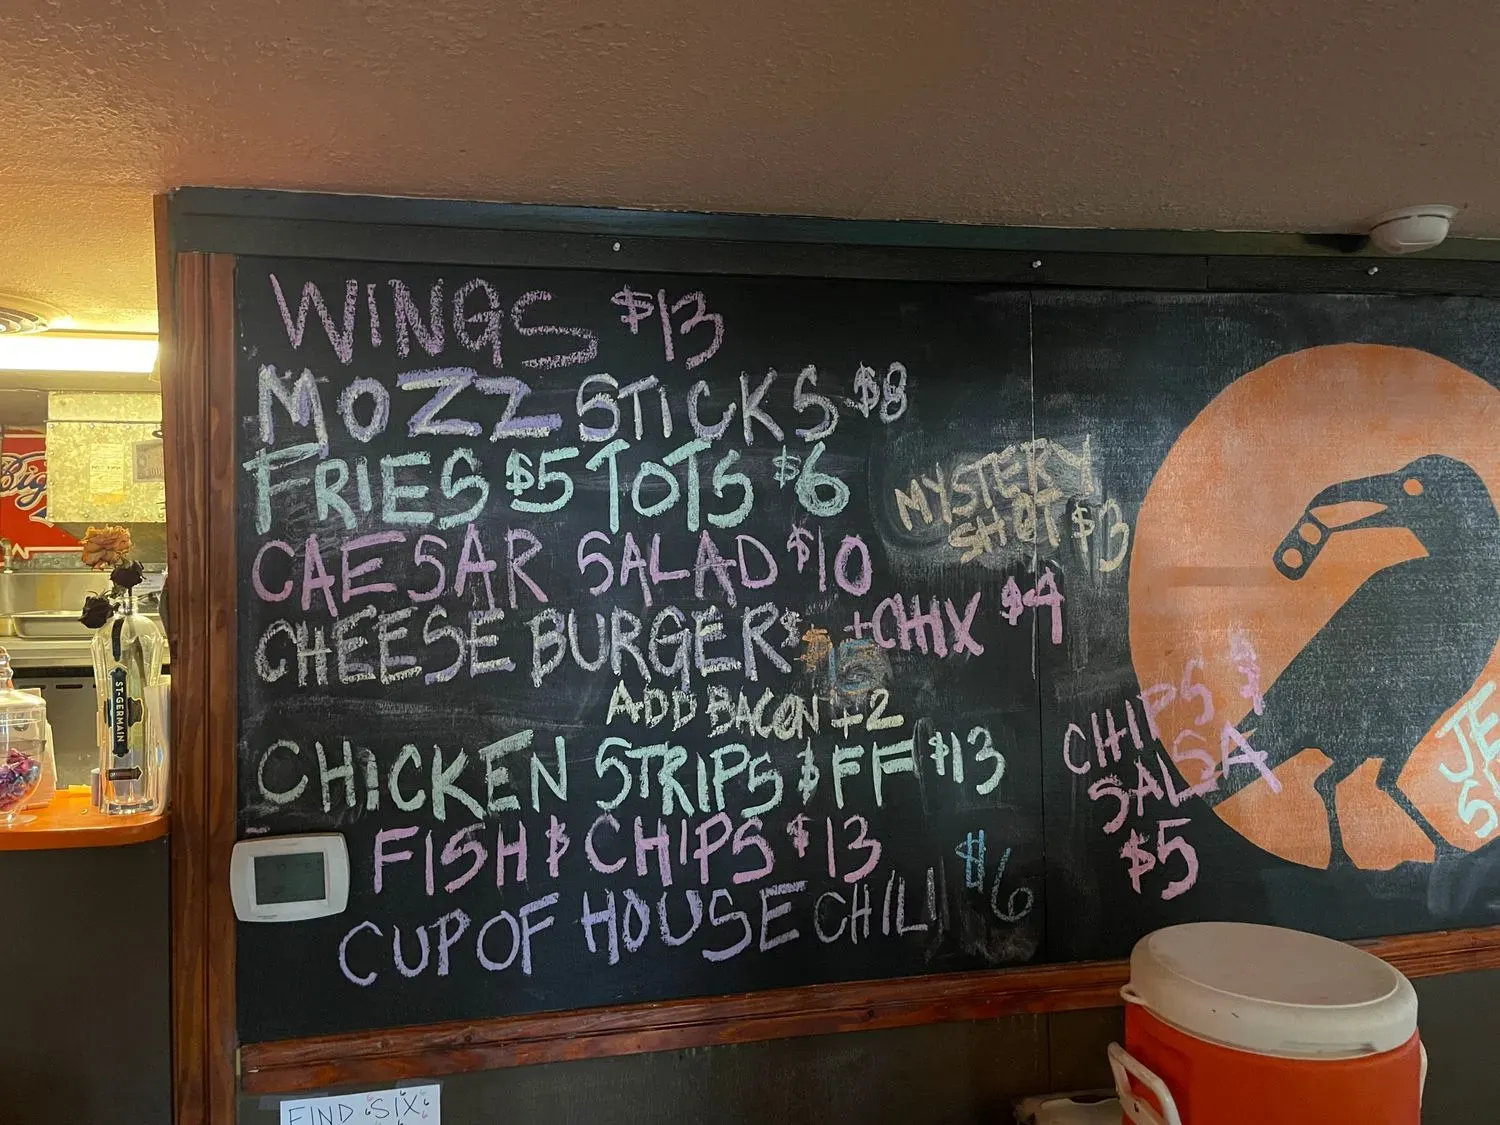 WINGS $13
MOZZ STICKS $8
FRIES $5 TOTS $6
CAESAR SALAD $10
+CHIX $4
CHEESE BURGER $15
ADD BACON +2
CHICKEN STRIPS & FF $13
FISH & CHIPS $13
CUP OF HOUSE CHILI $6
MYSTERY
SHOT $3
CHIPS &
SALSA
$5
JE
S
ST-GERMAIN
Big
FIND SIX